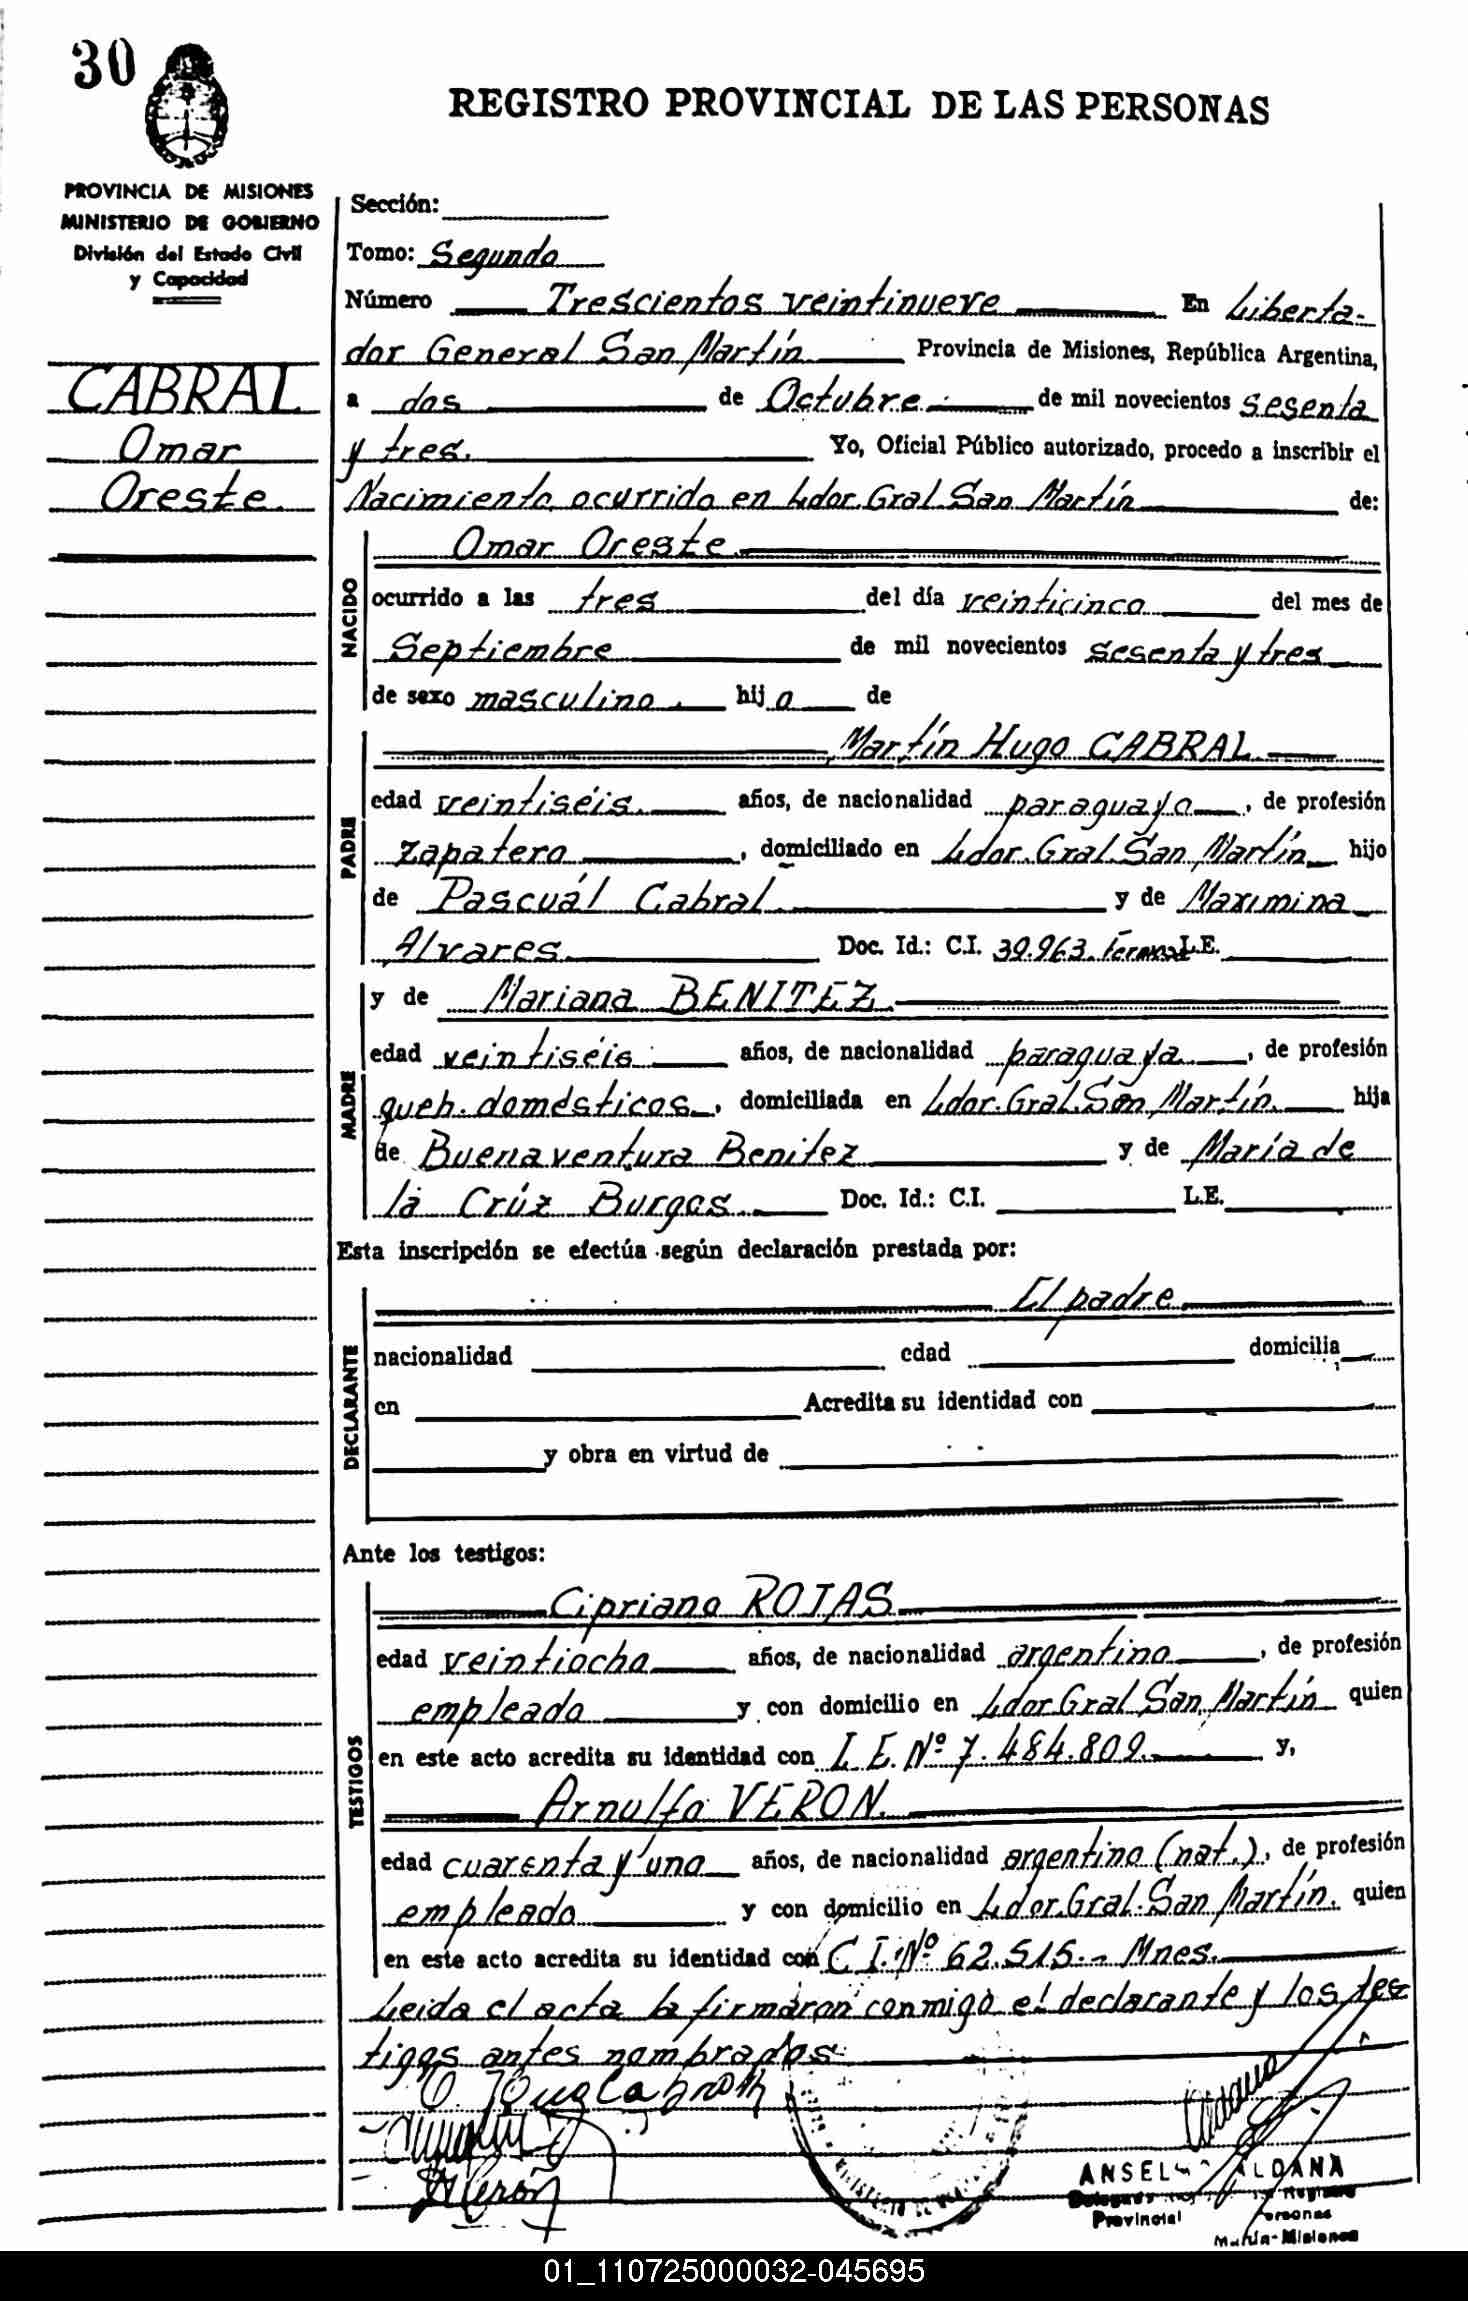 30
REGISTRO PROVINCIAL DE LAS PERSONAS
PROVINCIA DE MISIONES
MINISTERIO DE GOBIERNO
División del Estado Civil
y Capacidad
CABRAL
Omar
Oreste.
Sección:
Tomo: Segundo
Número Trescientos veintinueve En Liberta-
dor General San Martín Provincia de Misiones, República Argentina,
a dos de Octubre de mil novecientos sesenta
y tres. Yo, Oficial Público autorizado, procedo a inscribir el
Nacimiento ocurrido en Ldor. Gral. San Martín de:
NACIDO
Omar Oreste
ocurrido a las tres del día veinticinco del mes de
Septiembre de mil novecientos sesenta y tres
de sexo masculino. hijo de
PADRE
Martín Hugo CABRAL
edad veintiséis. años, de nacionalidad paraguayo, de profesión
zapatero, domiciliado en Ldor. Gral. San Martín hijo
de Pascuál Cabral y de Maximina
Alvares Doc. Id.: C.I. 39.963. L.E.
MADRE
y de Mariana BENITEZ
edad veintiséis años, de nacionalidad paraguaya, de profesión
queh. domésticos, domiciliada en Ldor. Gral. San Martín. hija
de Buenaventura Benitez y de María de
la Crúz Burgos Doc. Id.: C.I. L.E.
Esta inscripción se efectúa según declaración prestada por:
DECLARANTE
El padre
nacionalidad edad domicilia
en Acredita su identidad con
y obra en virtud de
Ante los testigos:
TESTIGOS
Cipriano ROJAS
edad veintiocho años, de nacionalidad argentino, de profesión
empleado y con domicilio en Ldor. Gral. San Martín quien
en este acto acredita su identidad con L.E. Nº 7.484.809. y,
Arnulfo VERON.
edad cuarenta y uno años, de nacionalidad argentino (nat.), de profesión
empleado y con domicilio en Ldor. Gral. San Martín. quien
en este acto acredita su identidad con C.I. Nº 62.515.- Mnes.
Leida el acta la firmaron conmigo el declarante y los tes
tigos antes nombrados.
ALDANA
Provincial
01_110725000032-045695